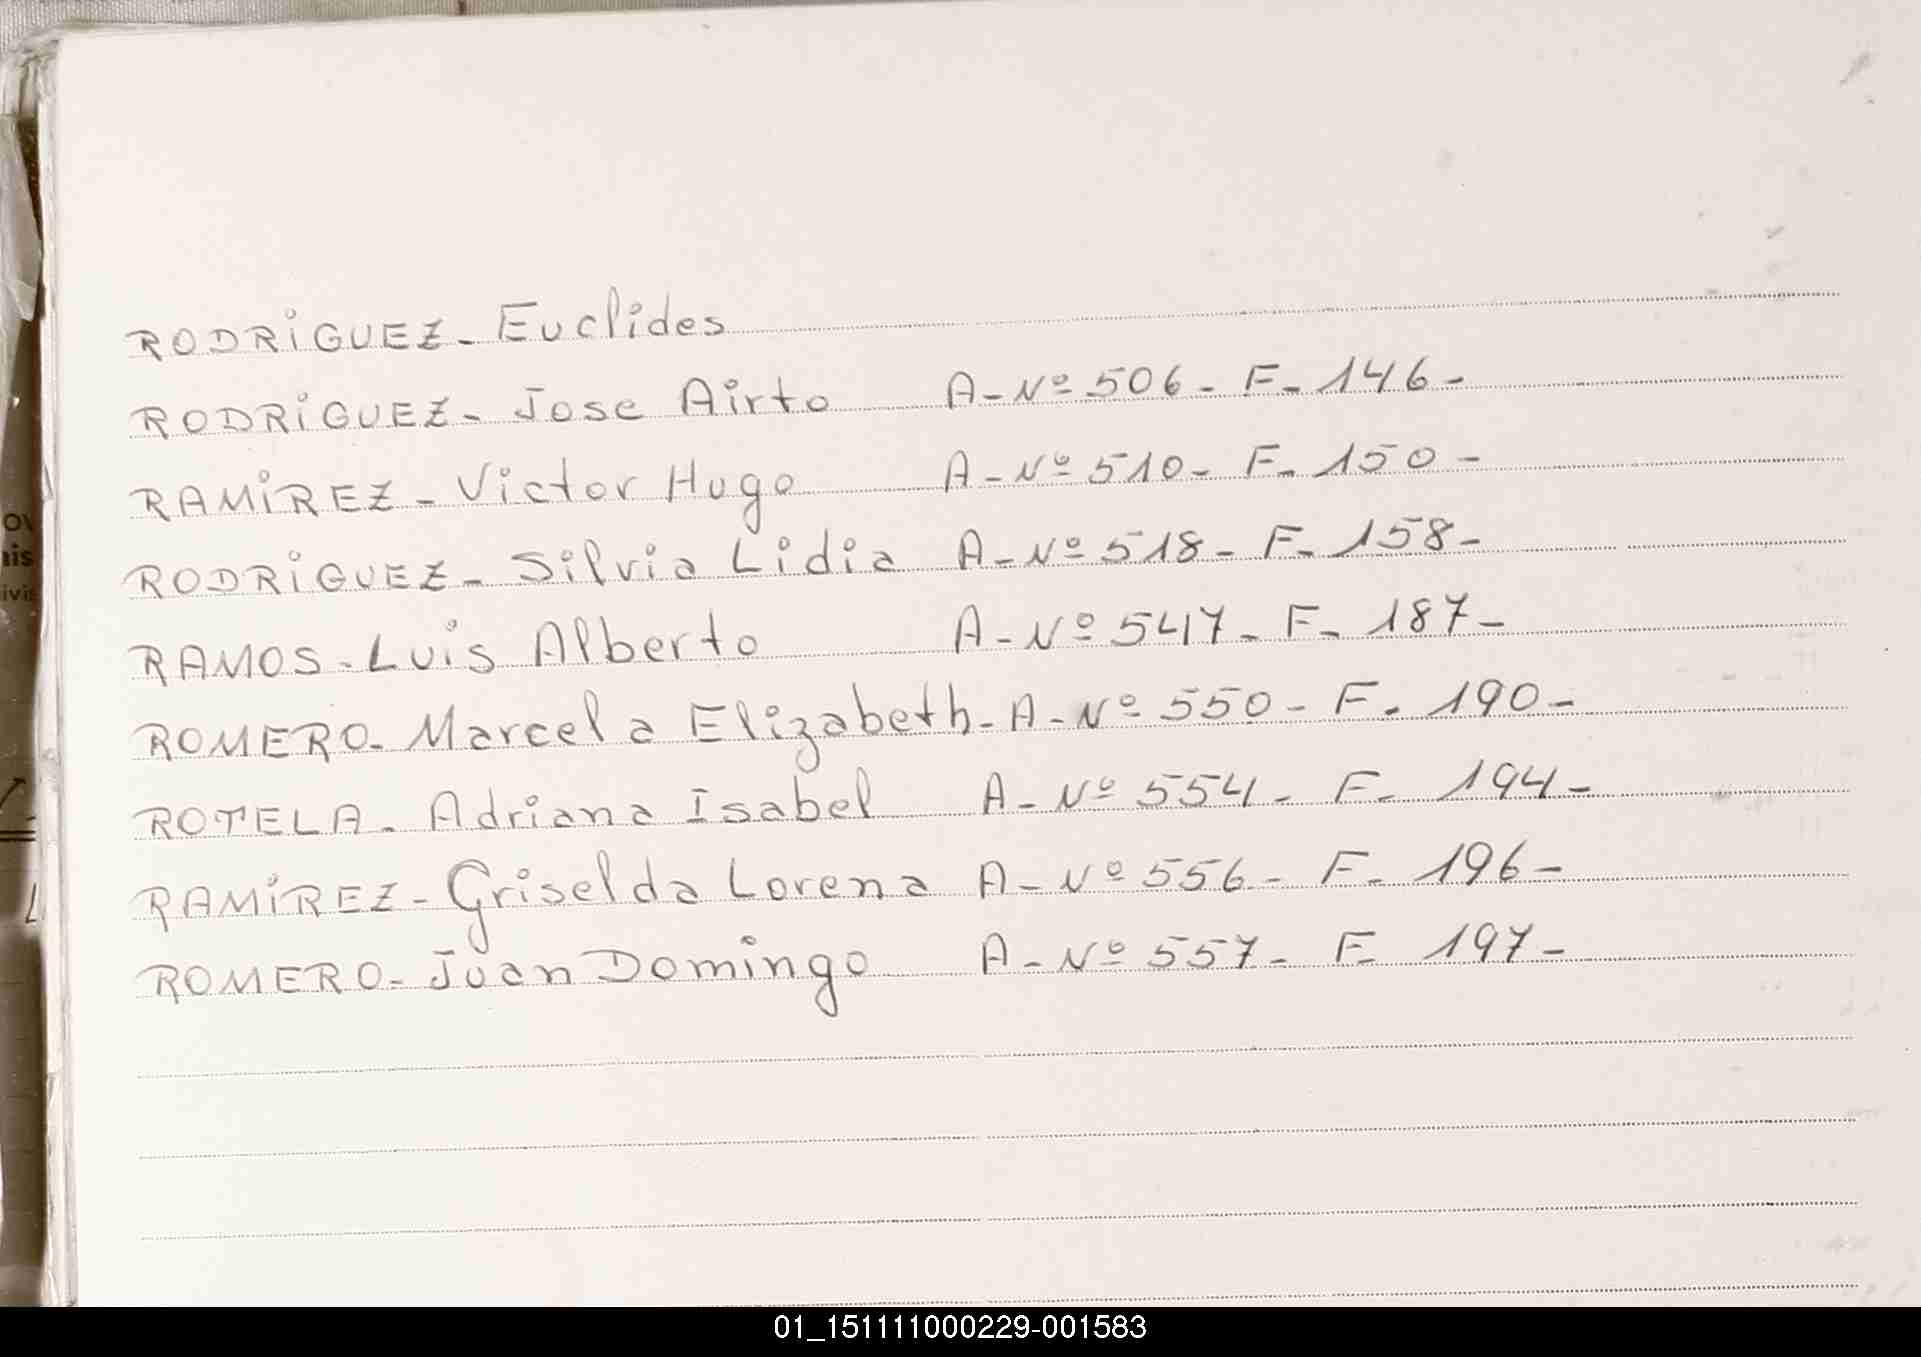 RODRIGUEZ - Euclides
RODRIGUEZ - Jose Airto A - Nº 506 - F - 146 -
RAMIREZ - Victor Hugo A - Nº 510 - F - 150 -
RODRIGUEZ - Silvia Lidia A - Nº 518 - F - 158 -
RAMOS - Luis Alberto A - Nº 547 - F - 187 -
ROMERO - Marcela Elizabeth - A - Nº 550 - F - 190 -
ROTELA - Adriana Isabel A - Nº 554 - F - 194 -
RAMIREZ - Griselda Lorena A - Nº 556 - F - 196 -
ROMERO - Juan Domingo A - Nº 557 - F 197 -
01_151111000229-001583